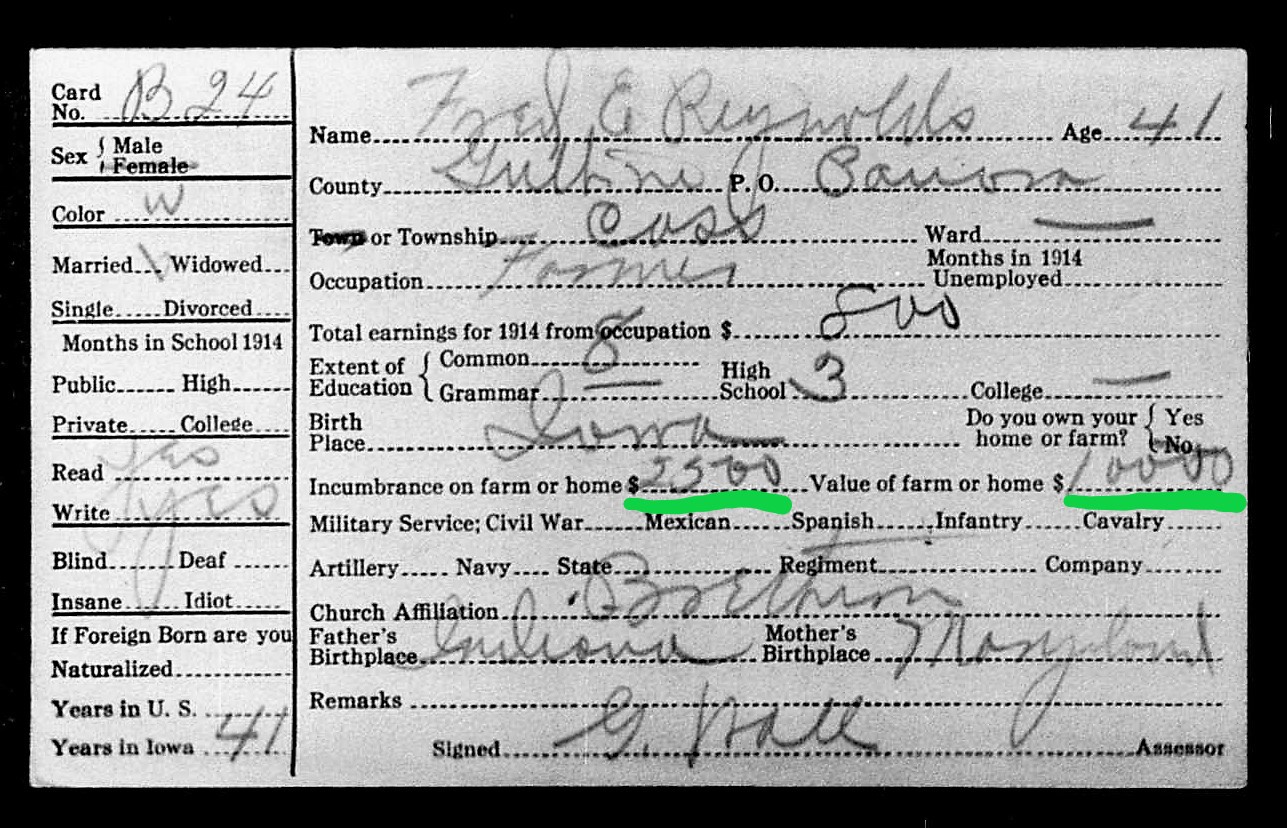 Card No. B 24
Sex { Male Female
Color W
Married Widowed
Single Divorced
Months in School 1914
Public High
Private College
Read yes
Write yes
Blind Deaf
Insane Idiot
If Foreign Born are you
Naturalized
Years in U. S.
Years in Iowa 41
Name Fred E Reynolds Age 41
County Guthrie P. O. Panora
Town or Township Cass Ward —
Occupation Farmer Months in 1914 Unemployed
Total earnings for 1914 from occupation $ 800
Extent of Education { Common 8 Grammar — High School 3 College —
Birth Place Iowa Do you own your home or farm? { Yes No
Incumbrance on farm or home $ 2500 Value of farm or home $ 10000
Military Service; Civil War Mexican Spanish Infantry Cavalry
Artillery Navy State Regiment Company
Church Affiliation Brethren
Father's Birthplace Indiana Mother's Birthplace Maryland
Remarks
Signed G. Hall Assessor